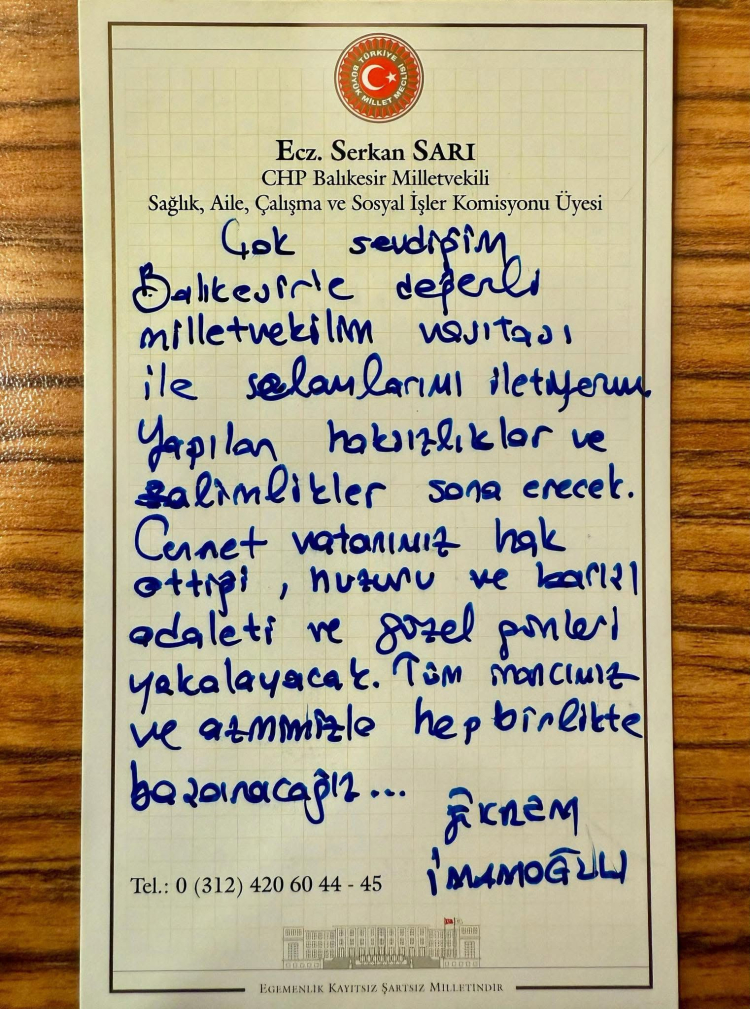 TÜRKİYE BÜYÜK MİLLET MECLİSİ
Ecz. Serkan SARI
CHP Balıkesir Milletvekili
Sağlık, Aile, Çalışma ve Sosyal İşler Komisyonu Üyesi
Çok sevdiğim
Balıkesir'e değerli
milletvekilim vasıtası
ile selamlarımı iletiyorum
Yapılan haksızlıklar ve
zalimlikler sona erecek.
Cennet vatanımız hak
ettiği, huzuru ve barışı
adaleti ve güzel günleri
yakalayacak. Tüm inancımız
ve azmimizle hep birlikte
kazanacağız...
EKREM
İMAMOĞLU
Tel.: 0 (312) 420 60 44 - 45
EGEMENLİK KAYITSIZ ŞARTSIZ MİLLETİNDİR